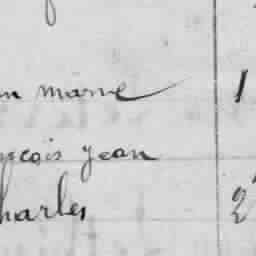 n marie 1
nçois jean
harles 2